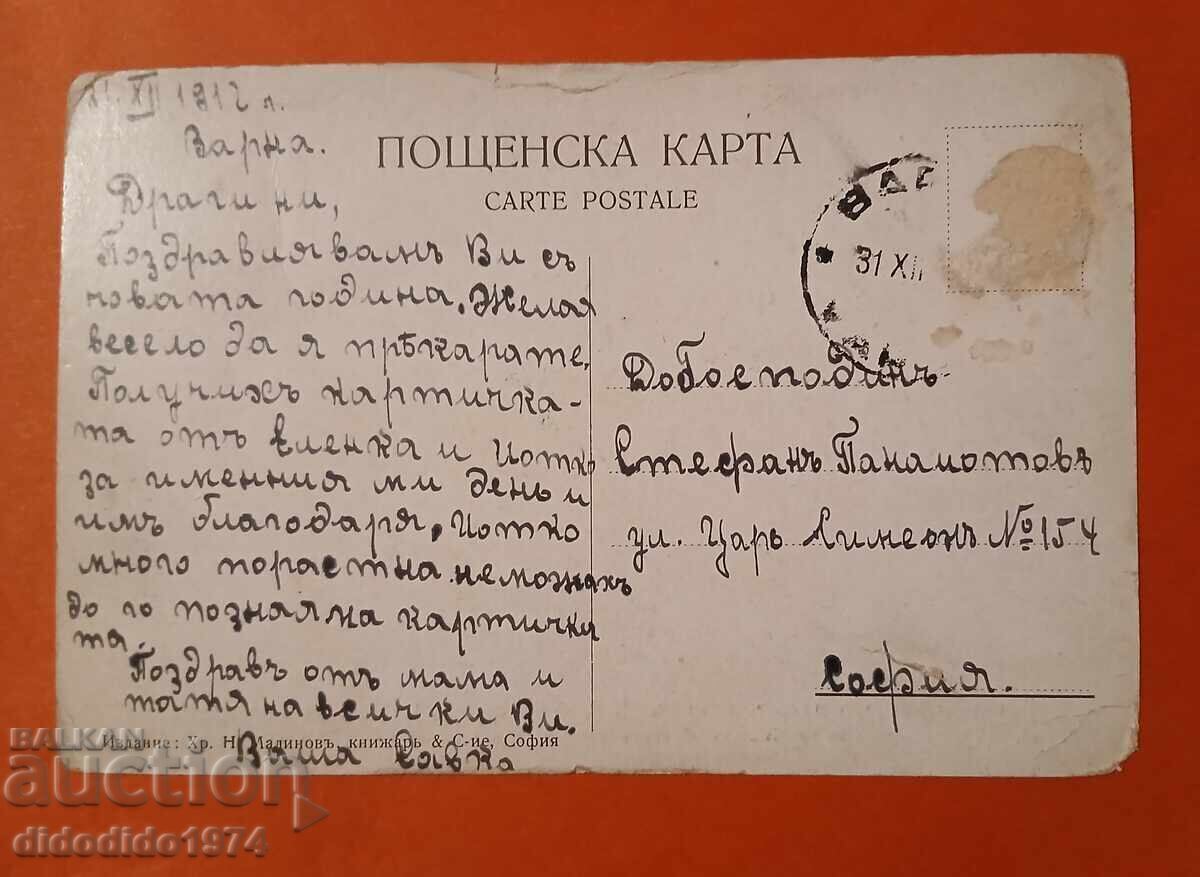 XII 1912 г.
Варна.
ПОЩЕНСКА КАРТА
CARTE POSTALE
Драги ни,
Поздравлявамъ Ви съ
новата година. Желая
весело да я прѣкарате.
Получихъ картичка-
та отъ Еленка и Йотко
за именния ми день и
имъ благодаря. Йотко
много порастна не можахъ
до го позная на картичка
та.
Поздравъ отъ мама и
татя на всички Ви.
Ваша Савка
31 XII
До Господинъ
Стефанъ Панайотовъ
ул. Царь Симеонъ № 154
София.
Издание: Хр. Н. Малиновъ, книжарь & С-ие, София
BALKAN
auction
didodido1974